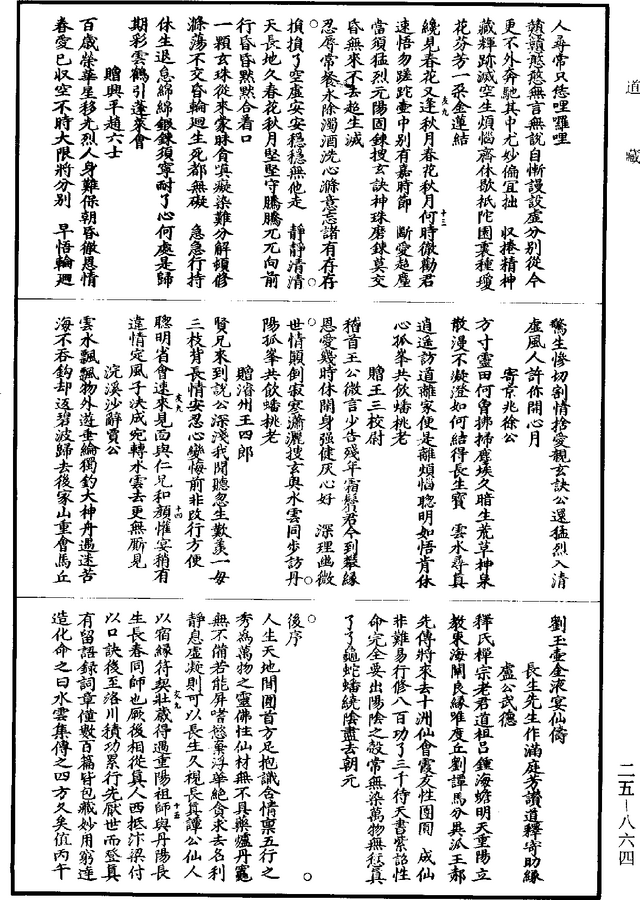 道藏
人尋常只恁哩囉哩
憨憨無言無說自慚謾設虛分別從今
更不外奔馳其中尤妙偏宜拙　収捲精神
藏輝跡滅空生煩惱齊休歇祇陀園裏種瓊
花芬芳一朵金蓮結
纔見春花又逢秋月春花秋月何時徹勸君
速悟勿蹉跎壺中別有嘉時節　斷愛起塵
當須猛烈元陽固鍊搜玄訣神珠磨鍊莫交
昏無來不去超生滅
忍辱常餐木除濁酒洗心滌意忘諸有存存
損損了空虛安安穩穩無他走　靜靜清清
天長地久春花秋月堅堅守騰騰兀兀向前
行昏昏默默合着口
一顆玄珠從來蒙昧貪瞋癡染難分解頓修
滌蕩不交昏輪廻生死都無礙　急急行持
休生退怠綿綿鍛鍊須寧耐了心何處是歸
期彩雲鶴引蓬萊會
贈興平趙六士
百歲榮華星移光烈人身難保朝昏徹恩情
春愛已収空不時大限將分別　早悟輪廻
驚生慘切割情捨愛親玄訣公還猛烈入清
虛風人許你開心月
寄京兆徐公
方寸靈田何曾掃拂塵埃久暗生荒草神杲
散漫不凝澄如何結得長生寶　雲水尋真
逍遙訪道離家便是離煩惱聰明如悟肯休
心孤峯共飲蟠桃老
贈王三校尉
稽首王公微言少告殘年霜鬢君今到攀緣
恩愛幾時休閑身強健灰心好　深理幽微
世情顛倒寂寥瀟灑搜玄奧水雲同步訪丹
陽孤峯共飲蟠桃老
贈濬州王四郎
賢兄來到說公深淺我聞聽忽生歎羨一毋
三枝背長情安忍心變悔前非改行方便
聰明省會速來見面與仁兄和顏懽宴稍有
違情定風子決成宛轉水雲去更無厮見
浣溪沙辭賈公
雲水飄飄物外遊垂綸獨釣大神舟遇迷苦
海不吞鈎却返碧波歸去後家山重會馬丘
劉玉壺金液宴仙儔
長生先生作滿庭芳讚道釋寄助緣
盧公武德
釋氏禪宗老君道祖呂鍾海蟾明天重陽立
教東海闡良緣唯度丘劉譚馬分異派王郝
先傳將來去十洲仙會霞友性團圓　成仙
非難易行修八百功了三千待天書紫詔性
命完全要出陽陰之殼常無染萬物無愆真
了了龜蛇蟠繞陰盡去朝元
後序
人生天地間圓首方足抱識含情稟五行之
秀為萬物之靈佛性仙材無不具藥爐丹竈
無不備若能屏嗜慾棄浮華絕貪求去名利
靜息虛凝則可以長生久視長真譚公仙人
以宿緣待契壯歲得遇重陽祖師與丹陽長
生長春同師也厥後相從真人西抵汴梁付
以口訣後至洛川積功累行先厭世而登真
有留語錄詞章僅數百篇皆包藏妙用窮達
造化命之曰水雲集傳之四方久矣值丙午
二五—八六四